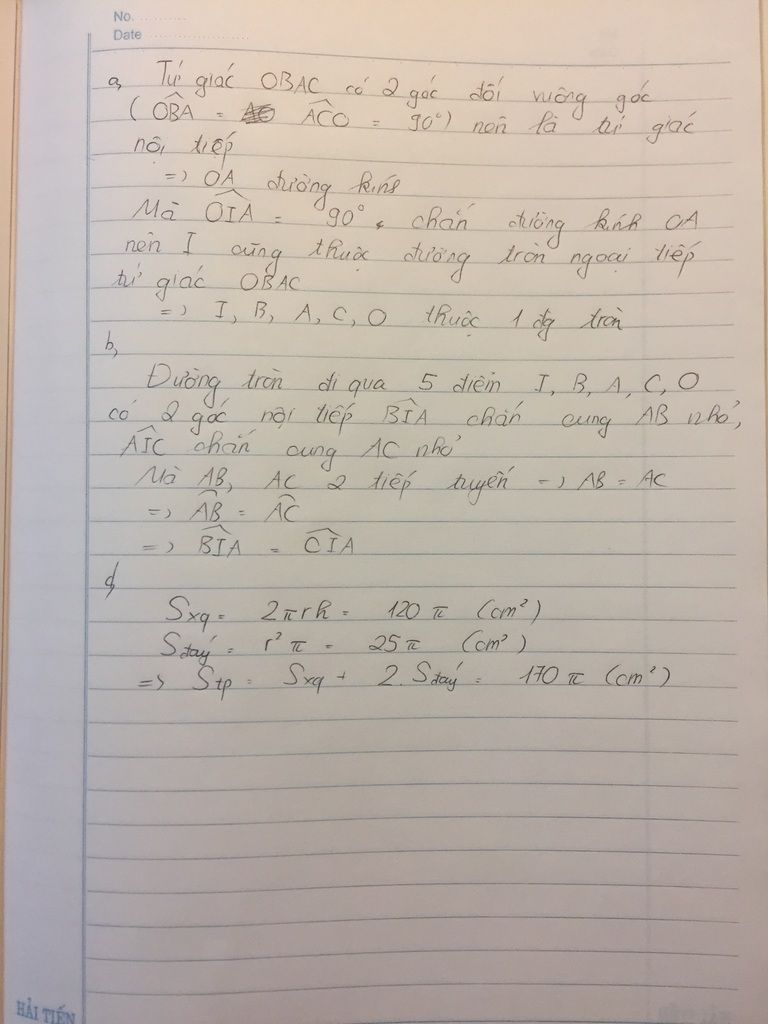 No. ............
Date ........................
a, Tứ giác OBAC có 2 góc đối vuông góc
( OBA = ACO = 90°) nên là tứ giác
nội tiếp
=> OA đường kính
Mà OIA = 90°, chắn đường kính OA
nên I cũng thuộc đường tròn ngoại tiếp
tứ giác OBAC
=> I, B, A, C, O thuộc 1 đg tròn
b,
Đường tròn đi qua 5 điểm I, B, A, C, O
có 2 góc nội tiếp BIA chắn cung AB nhỏ,
AIC chắn cung AC nhỏ
Mà AB, AC 2 tiếp tuyến => AB = AC
=> AB = AC
=> BIA = CIA
Sxq = 2πrh = 120π (cm²)
Sđáy = r²π = 25π (cm²)
=> Stp = Sxq + 2.Sđáy = 170π (cm²)
HẢI TIẾN